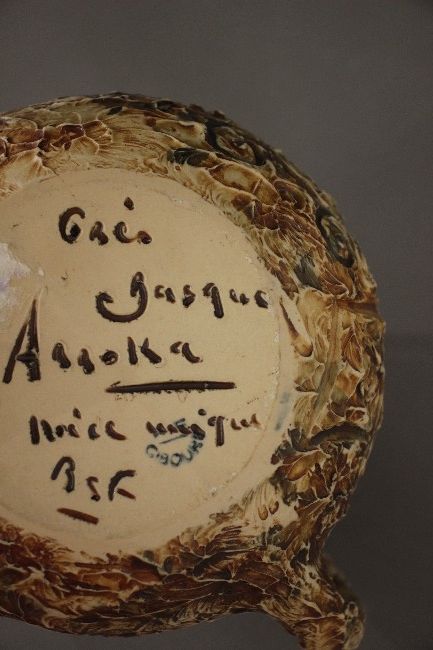 Grès
Basque
Assoka
pièce unique
BSK
CIBOURE